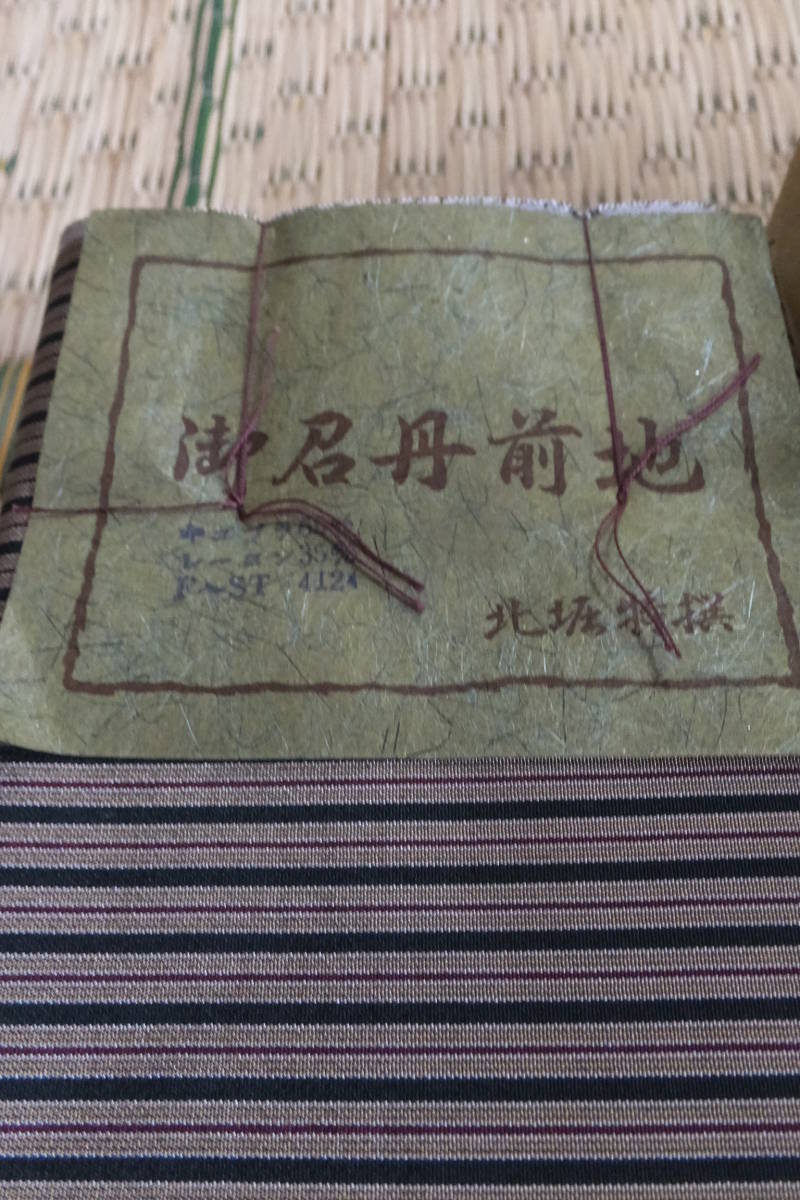 御召丹前地
キュプラ65%
レーヨン35%
F-ST 4124
北堀特撰